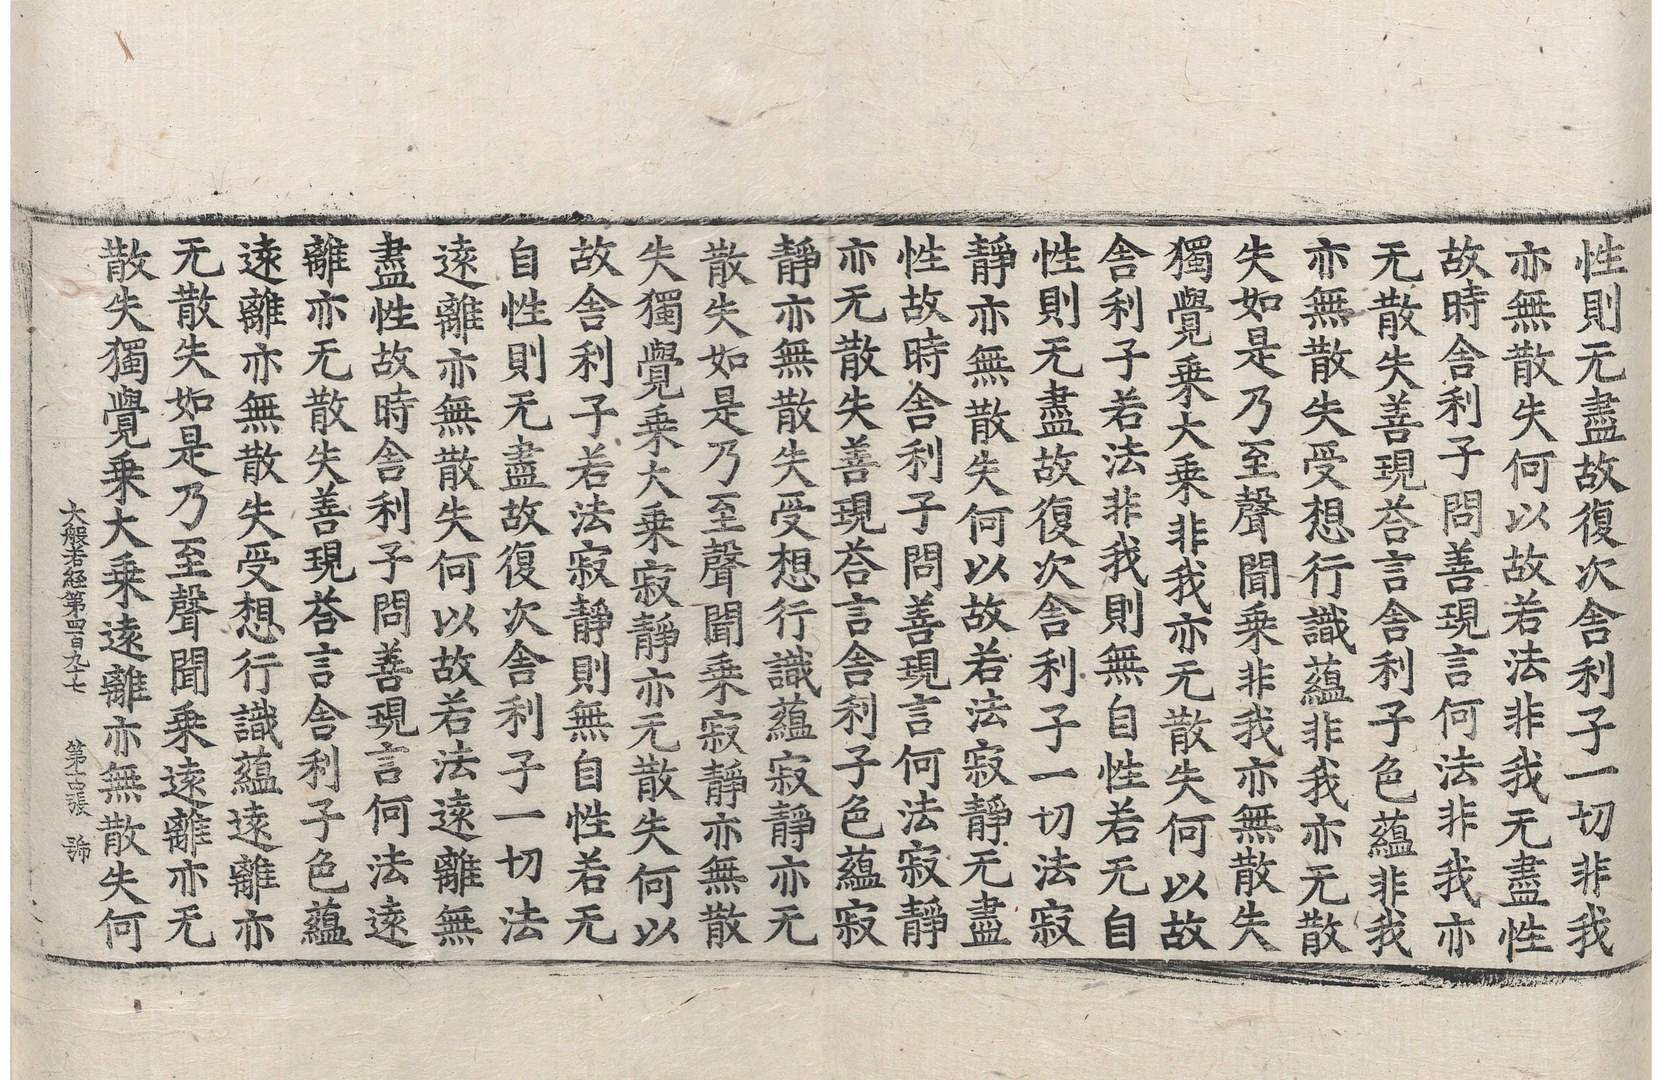 性則无盡故復次舍利子一切非我
亦無散失何以故若法非我无盡性
故時舍利子問善現言何法非我亦
无散失善現荅言舍利子色蘊非我
亦無散失受想行識蘊非我亦无散
失如是乃至聲聞乗非我亦無散失
獨覺乗大乗非我亦无散失何以故
舍利子若法非我則無自性若无自
性則无盡故復次舍利子一切法寂
靜亦無散失何以故若法寂靜无盡
性故時舍利子問善現言何法寂靜
亦无散失善現荅言舍利子色蘊寂
靜亦無散失受想行識蘊寂靜亦无
散失如是乃至聲聞乗寂靜亦無散
失獨覺乗大乗寂靜亦无散失何以
故舍利子若法寂靜則無自性若无
自性則无盡故復次舍利子一切法
遠離亦無散失何以故若法遠離無
盡性故時舍利子問善現言何法遠
離亦无散失善現荅言舍利子色蘊
遠離亦無散失受想行識蘊遠離亦
无散失如是乃至聲聞乗遠離亦无
散失獨覺乗大乗遠離亦無散失何
大般若経第四百九十七 第十四張 號